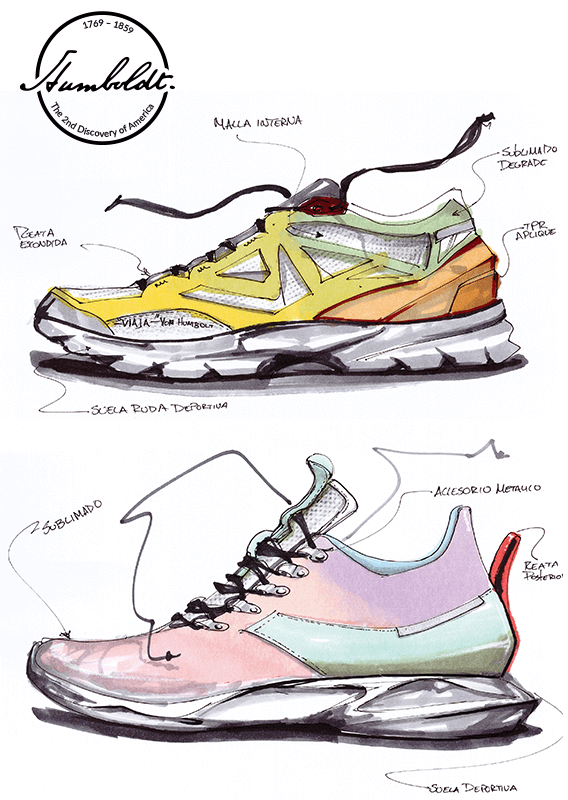 1769 - 1859
Humboldt.
The 2nd Discovery of America
MALLA INTERNA
SUBLIMADO
DEGRADE
REATA
ESCONDIDA
TPR
APLIQUE
VIAJA - VON HUMBOLT
SUELA RUDA DEPORTIVA
ACCESORIO METALICO
SUBLIMADO
REATA
POSTERIOR
SUELA DEPORTIVA